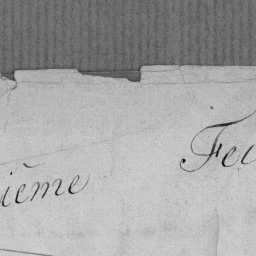 ième Feu